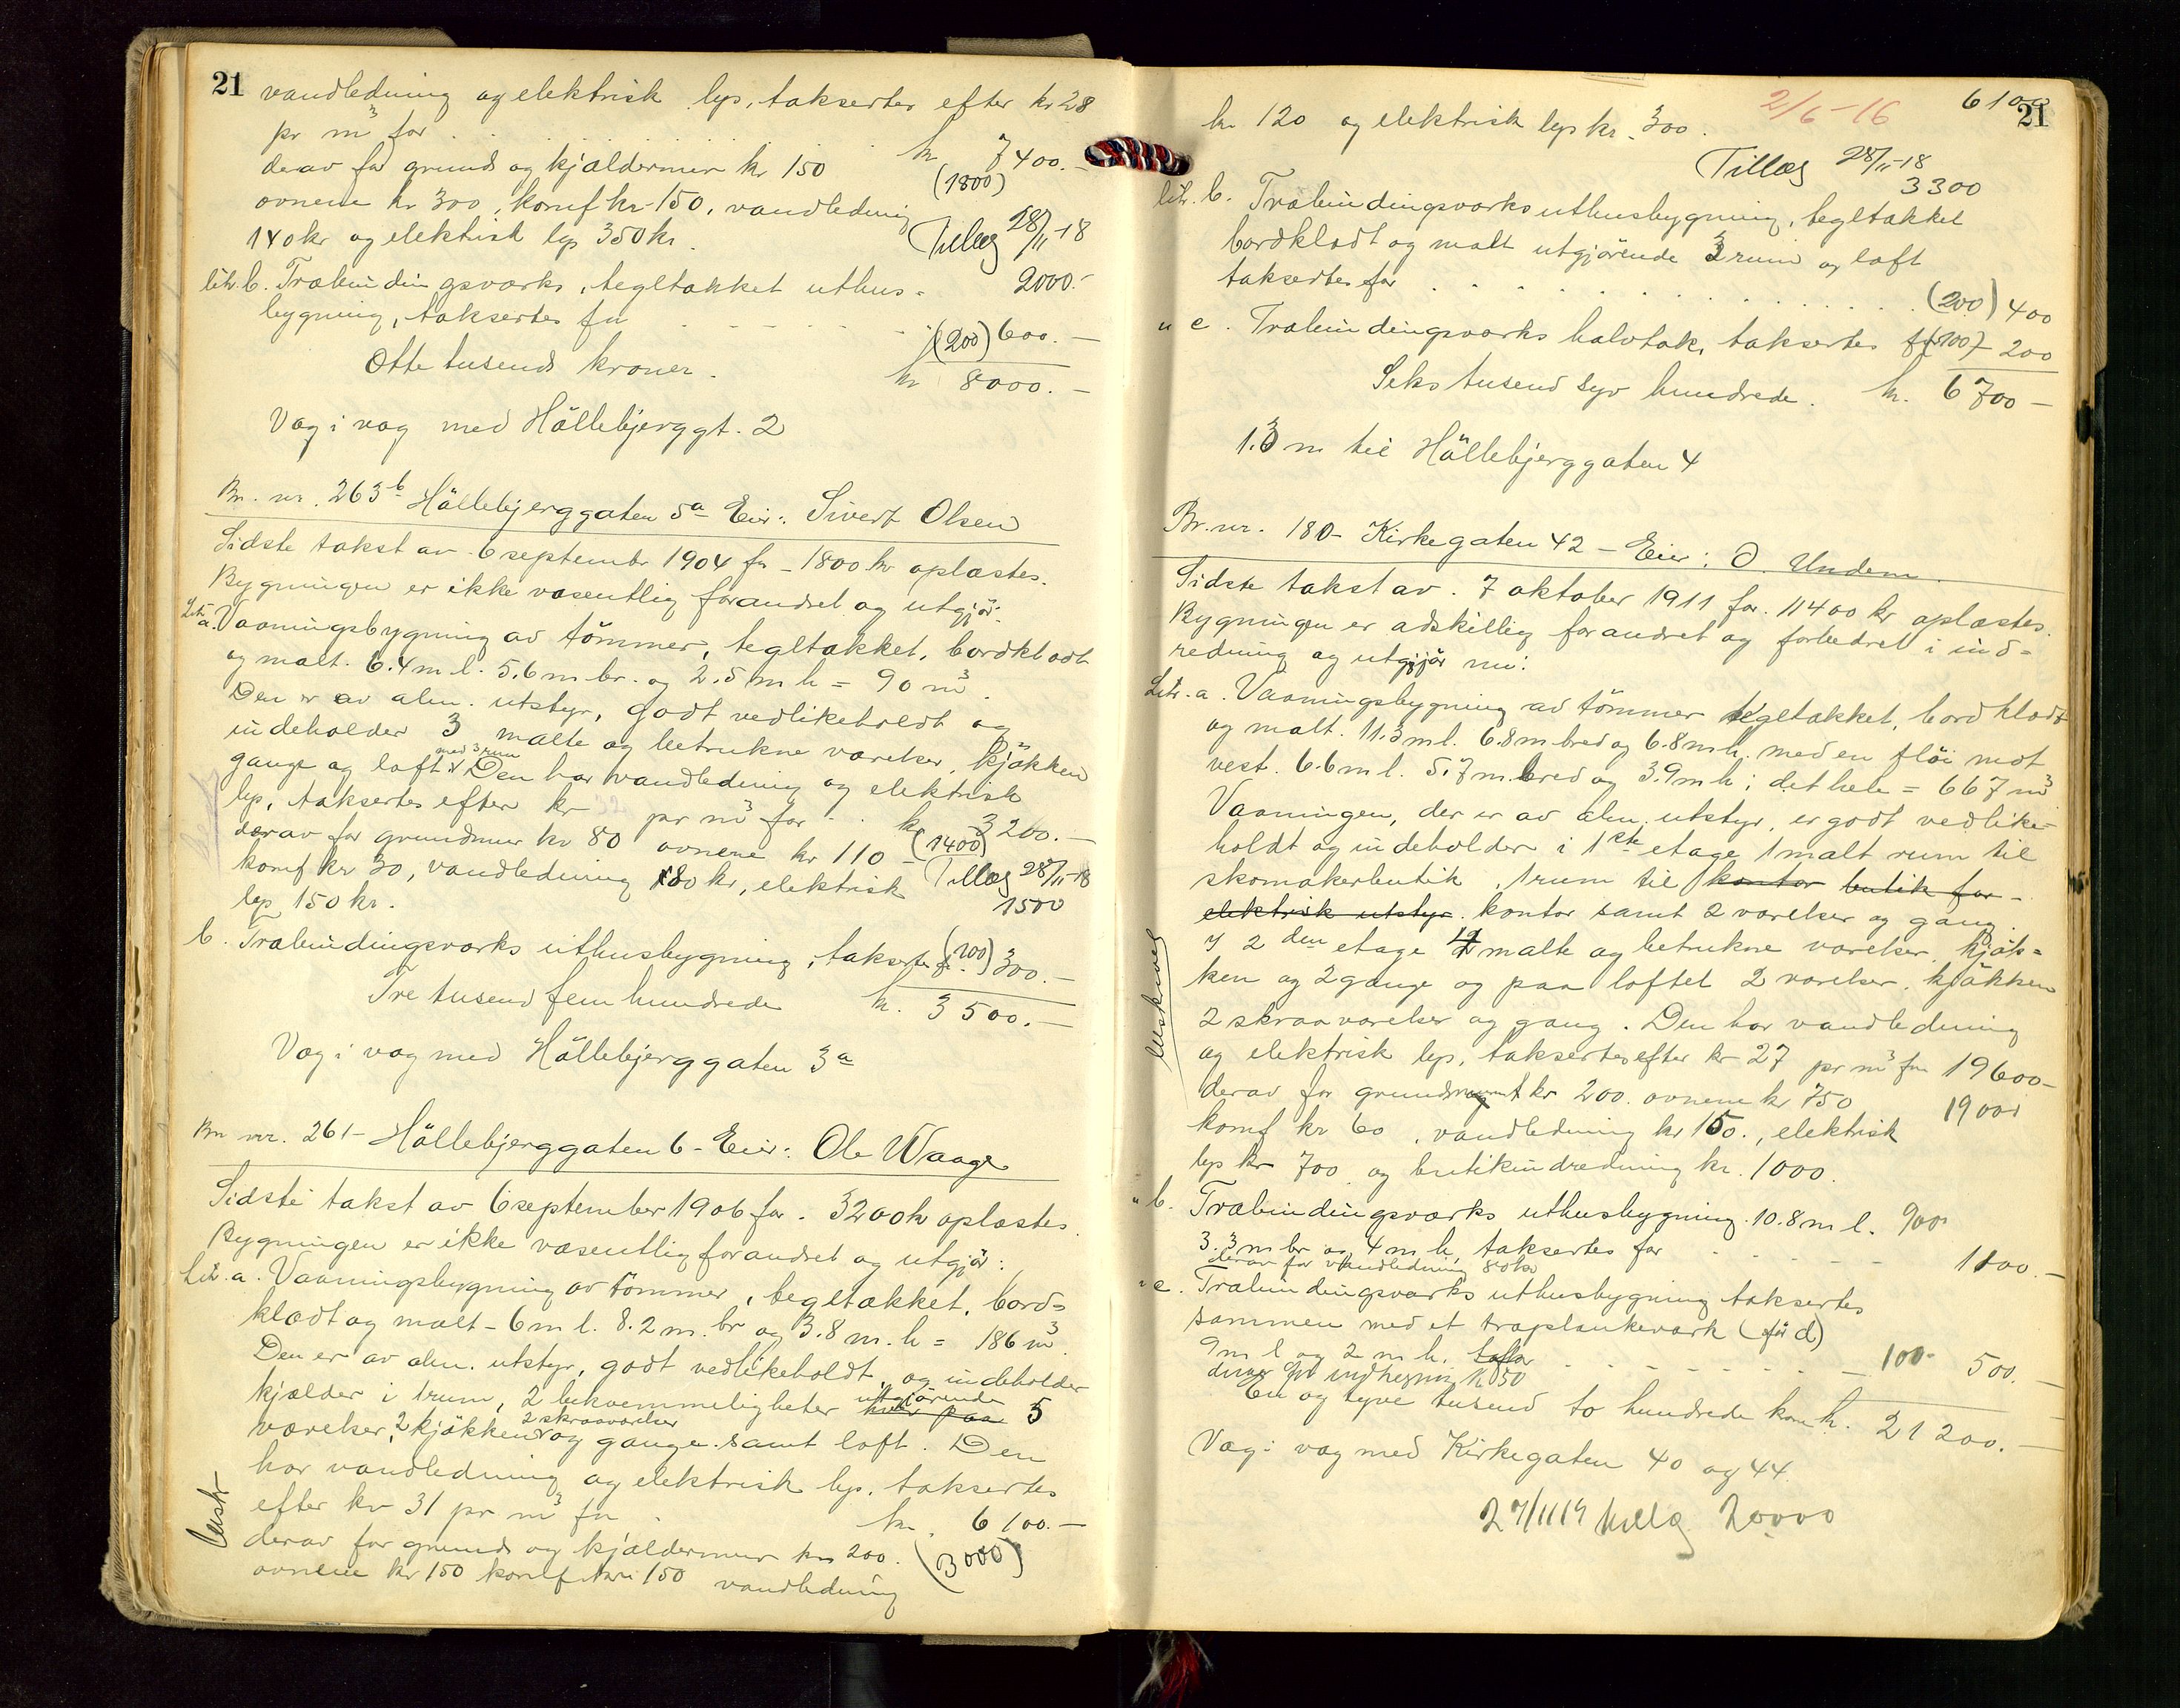 21 vandledning og elektrisk lys, takserter efter kr 28
pr m³ for . . . . kr 7400.-
derav for grunds og kjældermur kr 150 (1800)
ovnene kr 300, komf kr 150, vandledning Tillæg 28/11-18
140 kr og elektrisk lys 350 kr. 2000.-
litr. b. Træbindingsværks, tegltækket uthus-
bygning, taksertes for - - - - - (200) 600.-
Otte tusend kroner. kr 8000.-
Væg i væg med Hällebjerggt. 2
Br. nr. 263b Hällebjerggaten 5a Eier: Sivert Olsen
Sidste takst av 6 septembr 1904 for - 1800 kr oplæstes.
Bygningen er ikke væsentlig forandret og utgjör:
Litr a. Vaaningsbygning av tömmer, tegltækket, bordklædt
og malt. 6.4 m l. 5.6 m br. og 2.5 m h = 90 m³.
Den er av alm. utstyr, godt vedlikeholdt og
indeholder 3 malte og betrukne værelser, kjökken
gange og loft med 3 rum Den har vandledning og elektrisk
lys, taksertes efter kr pr m³ for . . kr 3200.-
derav for grundmur kr 80 ovnene kr 110 - (1400)
komf kr 30, vandledning 80 kr, elektrisk Tillæg 28/11-18
lys 150 kr. 1500
b. Træbindingsværks uthusbygning, taksertes for (200) 300.-
Tre tusend fem hundrede kr. 3500.-
Væg i væg med Hällebjerggaten 3a
Br nr. 261 - Hällebjerggaten 6 - Eier: Ole Waage
Sidste takst av 6 september 1906 for. 3200 kr oplæstes.
Bygningen er ikke væsentlig forandret og utgjör:
Litr. a. Vaaningsbygning av tömmer, tegltækket, bord-
klædt og malt - 6 m l. 8.2 m. br og 3.8 m. h = 186 m³.
Den er av alm. utstyr, godt vedlikeholdt, og indeholder
kjælder i 1 rum, 2 bekvemmeligheter hver paa utgjörende 5
værelser, 2 kjökkener 2 skraaværelser og gange samt loft. Den
har vandledning og elektrisk lys, taksertes
efter kr 31 pr m³ for . kr. 6100.-
derav for grunds og kjældermur kr 200. (3000)
ovnene kr 150 komf kr 150 vandledning
2/6-16 6100 21
kr 120 og elektrisk lys kr. 300.
Tillæg 28/11-18
3300
litr. b. Træbindingsværks uthusbygning, tegltækket
bordklædt og malt utgjörende 3 rum og loft
taksertes for . . . . . (200) 400
" c. Træbindingsværks halvtak, taksertes for (100) 200
Seks tusend syv hundrede. kr. 6700 -
1.3 m til Hällebjerggaten 4
Br. nr. 180 - Kirkegaten 42 - Eier: O. Undem.
Sidste takst av. 7 oktober 1911 for. 11400 kr oplæstes.
Bygningen er adskillig forandret og forbedret i ind-
redning og utgjör nu:
Litr. a. Vaaningsbygning av tömmer tegltækket, bordklædt
og malt. 11.3 m l. 6.8 m bred og 6.8 m h, med en flöi mot
vest. 6.6 m l. 5.7 m. bred og 3.9 m h; det hele = 667 m³
Vaaningen, der er av alm. utstyr, er godt vedlike-
holdt og indeholder i 1ste etage 1 malt rum til
skomakerbutik, 1 rum til kontor butik for -
elektrisk utstyr. kontor samt 2 værelser og gang.
I 2den etage 4 malte og betrukne værelser, kjök-
ken og 2 gange og paa loftet 2 værelser, kjökken
2 skraaværelser og gang. Den har vandledning
og elektrisk lys, taksertes efter kr 27 pr m³ for 19600-
derav for grundmur kr 200. ovnene kr 750 19000
komf kr 60, vandledning kr 150., elektrisk
lys kr 700 og butikindredning kr. 1000.
" b. Træbindingsværks uthusbygning. 10.8 m l. 900
3.3 m br og 4 m h, taksertes for - - - 1100.-
derav for vandledning 80 kr
" c. Træbindingsværks uthusbygning taksertes
sammen med et træplankeværk (för d)
9 m l og 2 m h. for - - - 100- 500.
En og tyve tusend to hundrede kron kr. 21200.-
Væg i væg med Kirkegaten 40 og 44.
27/11 19 tillæg 20000